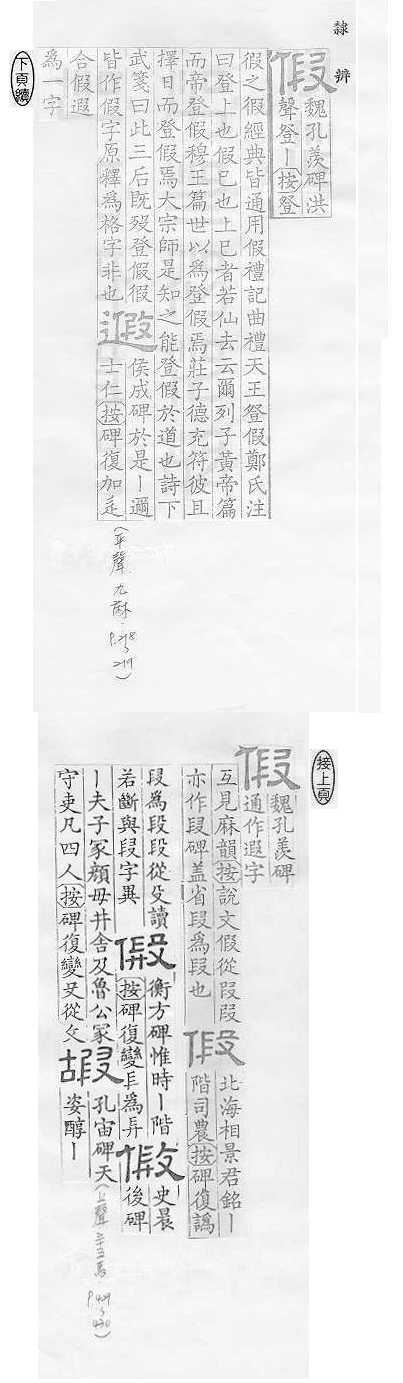 隸辨
假
魏孔羨碑洪
聲登丨按登
假之假經典皆通用假禮記曲禮天王登假鄭氏注
曰登上也假已也上已者若仙去云爾列子黃帝篇
而帝登假穆王篇世以為登假焉莊子德充符彼且
擇日而登假焉大宗師是知之能登假於道也詩下
武箋曰此三后既歿登假假
皆作假字原釋為格字非也
遐
侯成碑於是丨邇
士仁按碑復加辵
合假遐
為一字
下頁續
(平聲 九麻. P.218
219)
接上頁
假
魏孔羨碑
通作遐字
互見麻韻按說文假從叚叚
亦作段碑蓋省叚為段也
假
北海相景君銘丨
階司農按碑復譌
叚為段段從殳讀
若斷與叚字異
假
衡方碑惟時丨階
按碑復變
為
假
史晨
後碑
丨夫子冢顏母井舍及魯公冢
守吏凡四人按碑復變殳從攵
嘏
孔宙碑天
姿醇丨
(上聲 三十五馬 P.429
430)